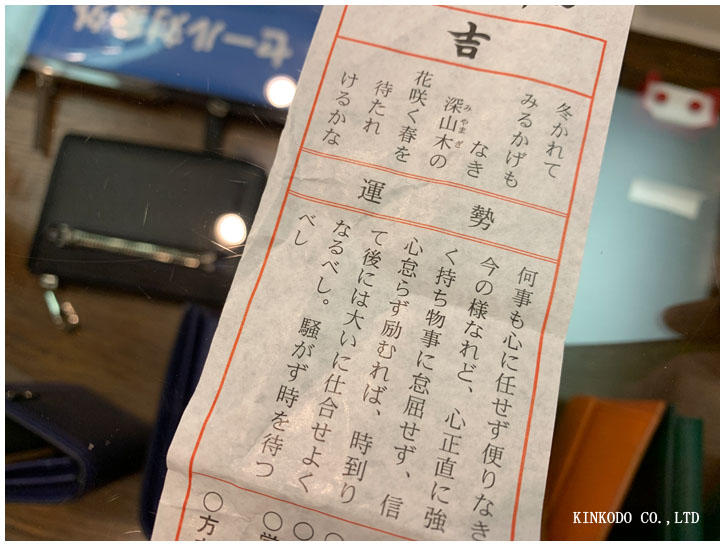 セール対象外
吉
冬かれて
みるかげも
なき
深山木の
みやまぎ
花咲く春を
待たれ
けるかな
運勢
何事も心に任せず便りなき
今の様なれど、心正直に強
く持ち物事に怠屈せず、信
心怠らず励むれば、時到り
て後には大いに仕合せよく
なるべし。騒がず時を待つ
べし
KINKODO CO.,LTD